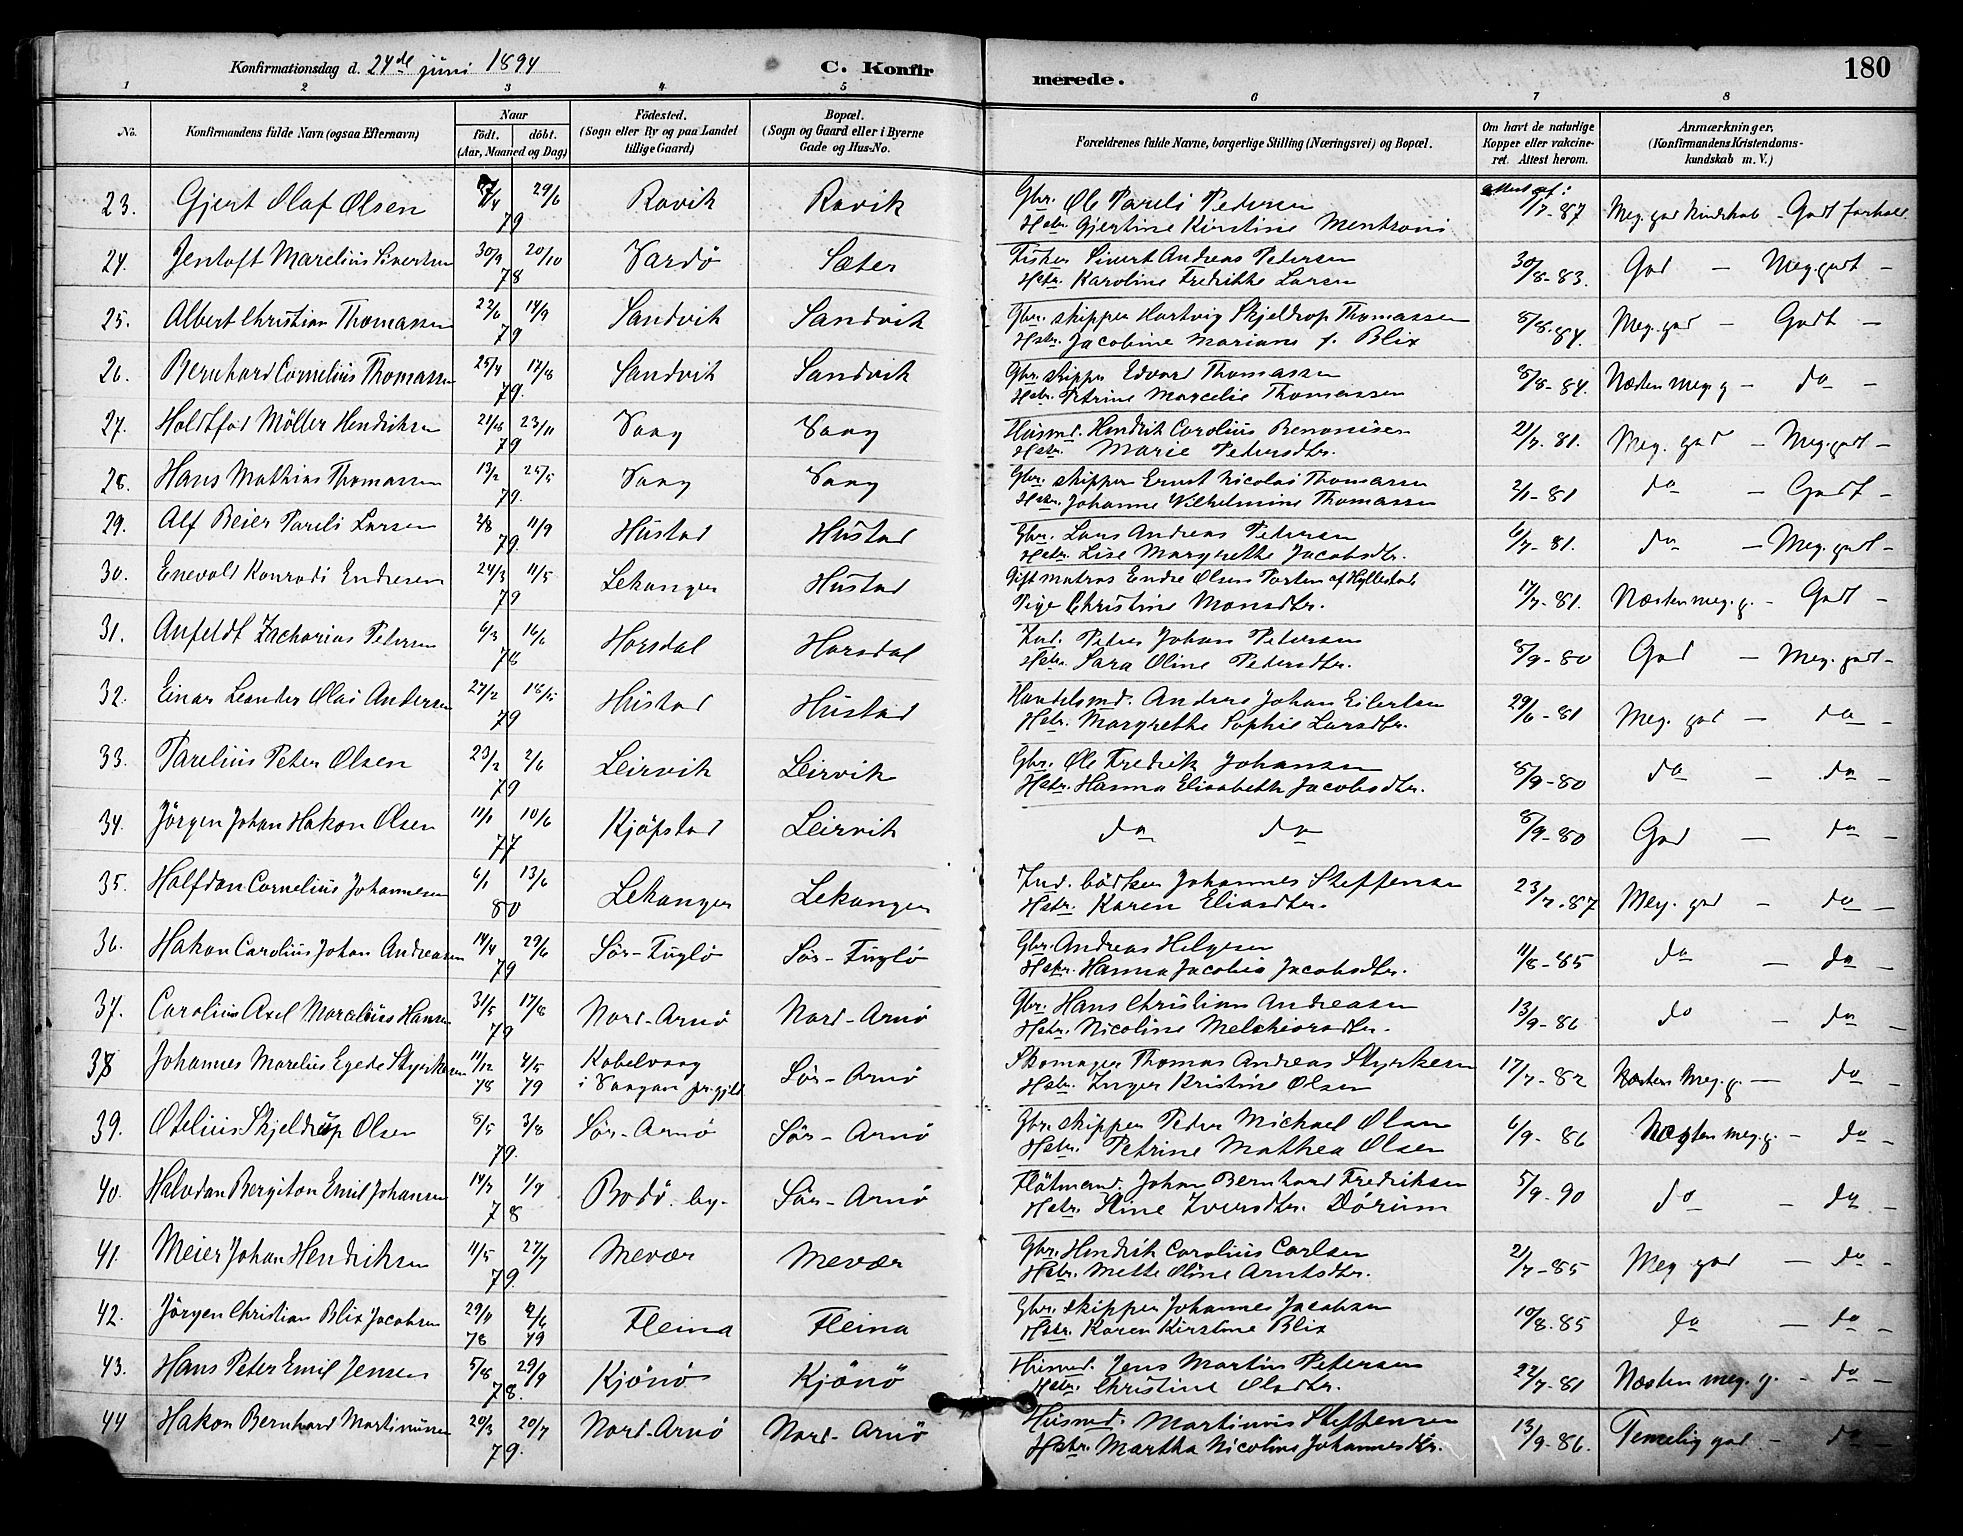 Konfirmationsdag d. 24de juni 1894
C. Konfirmerede.
180
1 2 3 4. 5 6 7 8
No. Konfirmandens fulde Navn (ogsaa Efternavn) Naar født. døbt. (Aar, Maaned og Dag) Födested. (Sogn eller By og paa Landet tillige Gaard) Bopæl. (Sogn og Gaard eller i Byerne Gade og Hus-No. Forældrenes fulde Navne, borgerlige Stilling (Næringsvei) og Bopæl. Om havt de naturlige Kopper eller vakcineret. Attest herom. Anmærkninger. (Konfirmandens Kristendomskundskab m. V.)
23. Gjert Olaf Olsen 29/6 79 Ravik Ravik Gbr. Ole Pareli Pedersen /7-87 Meg. god Kundskab - Godt forhold
Hstr. Gjertine Kirstine
24. Jentoft Marelius Sivertsen 30/9 20/10 78 Vardö Sæter Fisker Sivert Andreas Petersen 30/8-83. God - Meg. godt -
Hstr. Karoline Fredrikke Larsen
25. Albert Christian Thomassen 22/6 14/9 79 Sandvik Sandvik Gbr. skipper Hartvig Skjeldrop Thomassen 8/8-84. Meg. god - Godt -
Hstr. Jacobine Mariane f. Blix
26. Bernhard Cornelius Thomassen 25/4 17/8 79. Sandvik Sandvik Gbr. skipper Edvard Thomassen 8/8-84. Næsten meg g - do -
Hstr. Petrine Marcelie Thomassen
27. Holdtfod Möller Hendriksen 23/11 79 Vaag Vaag Husmd. Hendrik Carolius Benonisen 21/7-81. Meg. god - Meg. godt -
Hstr. Marie Petersdtr.
28. Hans Mathias Thomassen 13/2 25/5 79. Vaag Vaag Gbr. skipper Ernst Nicolai Thomassen 2/1-81 do - Godt -
Hstr. Johanne Vilhelmine Thomassen
29. Alf Beier Pareli Larsen 2/8 11/9 79. Hustad Hustad Gbr. Lars Andreas Petersen 6/7-81. do - Meg. godt -
Hstr. Lise Margrethe Jacobsdtr.
30. Enevolt Konradi Endresen 24/3 11/5 79 Lekanger Hustad Gift matros Endre Olsen Porten af Hyllestad. 17/7-81. Næsten meg. g. - Godt -
Pige Christine Monsdtr.
31. Anfeldt Zacharias Petersen 6/3 16/6 78 Horsdal Horsdal Ind. Peter Johan Petersen 8/9-80 God - Meg. godt -
Hstr. Sara Oline Pedersdtr.
32. Einar Leander Olai Andersen 27/2 18/5 79 Hustad Hustad Handelsmd. Anders Johan Eilertsen 29/6-81 Meg. god - do -
Hstr. Margrethe Sophie Larsdtr.
33. Parelius Peter Olsen 23/2 2/6 79 Leirvik Leirvik Gbr. Ole Fredrik Johansen 8/9-80 do - do -
Hstr. Hanna Elisabeth Jacobsdtr.
34. Jörgen Johan Hakon Olsen 11/1 10/6 77 Kjöpstad Leirvik do do 8/9-80 God - do -
35. Halfdan Cornelius Johannesen 6/1 13/6 80 Lekanger Lekanger Ind. bödker Johannes Steffensen 23/7-87 Meg. god - do -
Hstr. Karen Eliasdtr.
36. Hakon Carolius Johan Andreasen 14/4 29/6 79 Sör-Fuglö Sör-Fuglö Gbr. Andreas Helgesen 11/8-85 do - do -
Hstr. Hanna Jacobia Jacobsdtr.
37. Carolius Axel Marcelius Hansen 31/5 17/8 79 Nord-Arnö Nord-Arnö Gbr. Hans Christian Andreasen 13/9-86 do - do -
Hstr. Nicoline Melchiorsdtr.
38 Johannes Marelius Egede Styrkesen 11/12 78 4/5 79 Kabelvaag i Vaagan prgjld Sör-Arnö Skomager Thomas Andreas Styrkesen 17/7-82 Næsten Meg. g. - do -
Hstr. Inger Kristine Olsen
39. Otelius Skjeldrup Olsen 8/5 3/8 79. Sör-Arnö Sör-Arnö Gbr. skipper Peder Michael Olsen 6/9-86 Næsten meg. g. - do -
Hstr. Petrine Mathea Olsen
40. Halvdan Bergiton Emil Johansen 78 Bodö by. Sör-Arnö Flötmand. Johan Bernhard Fredriksen 5/9-90 do - do -
Hstr. Iversdtr. Dörum
41. Meier Johan Hendriksen 11/5 27/7 79. Mevær Mevær Gbr. Hendrik Carolius Carlsen 21/7-85 Meg god - do -
Hstr. Mette Oline Arntsdtr.
42. Jörgen Christian Blix Jacobsen 29/11 78 2/6 79 Fleina Fleina Gbr. skipper Johannes Jacobsen 10/8-85 do - do -
Hstr. Karen Kirstine Blix
43. Hans Peter Emil Jensen 5/8 29/9 78. Kjönö Kjönö Husmd. Jens Martin Petersen 22/7-81 Næsten meg. g. - do -
Hstr. Christine Olsdtr.
44 Hakon Bernhard Martinusen 20/3 20/7 79. Nord-Arnö Nord-Arnö Husmd. Martinus Steffensen 13/9-86. Temelig god - do -
Hstr. Martha Nicoline Johannesdtr.